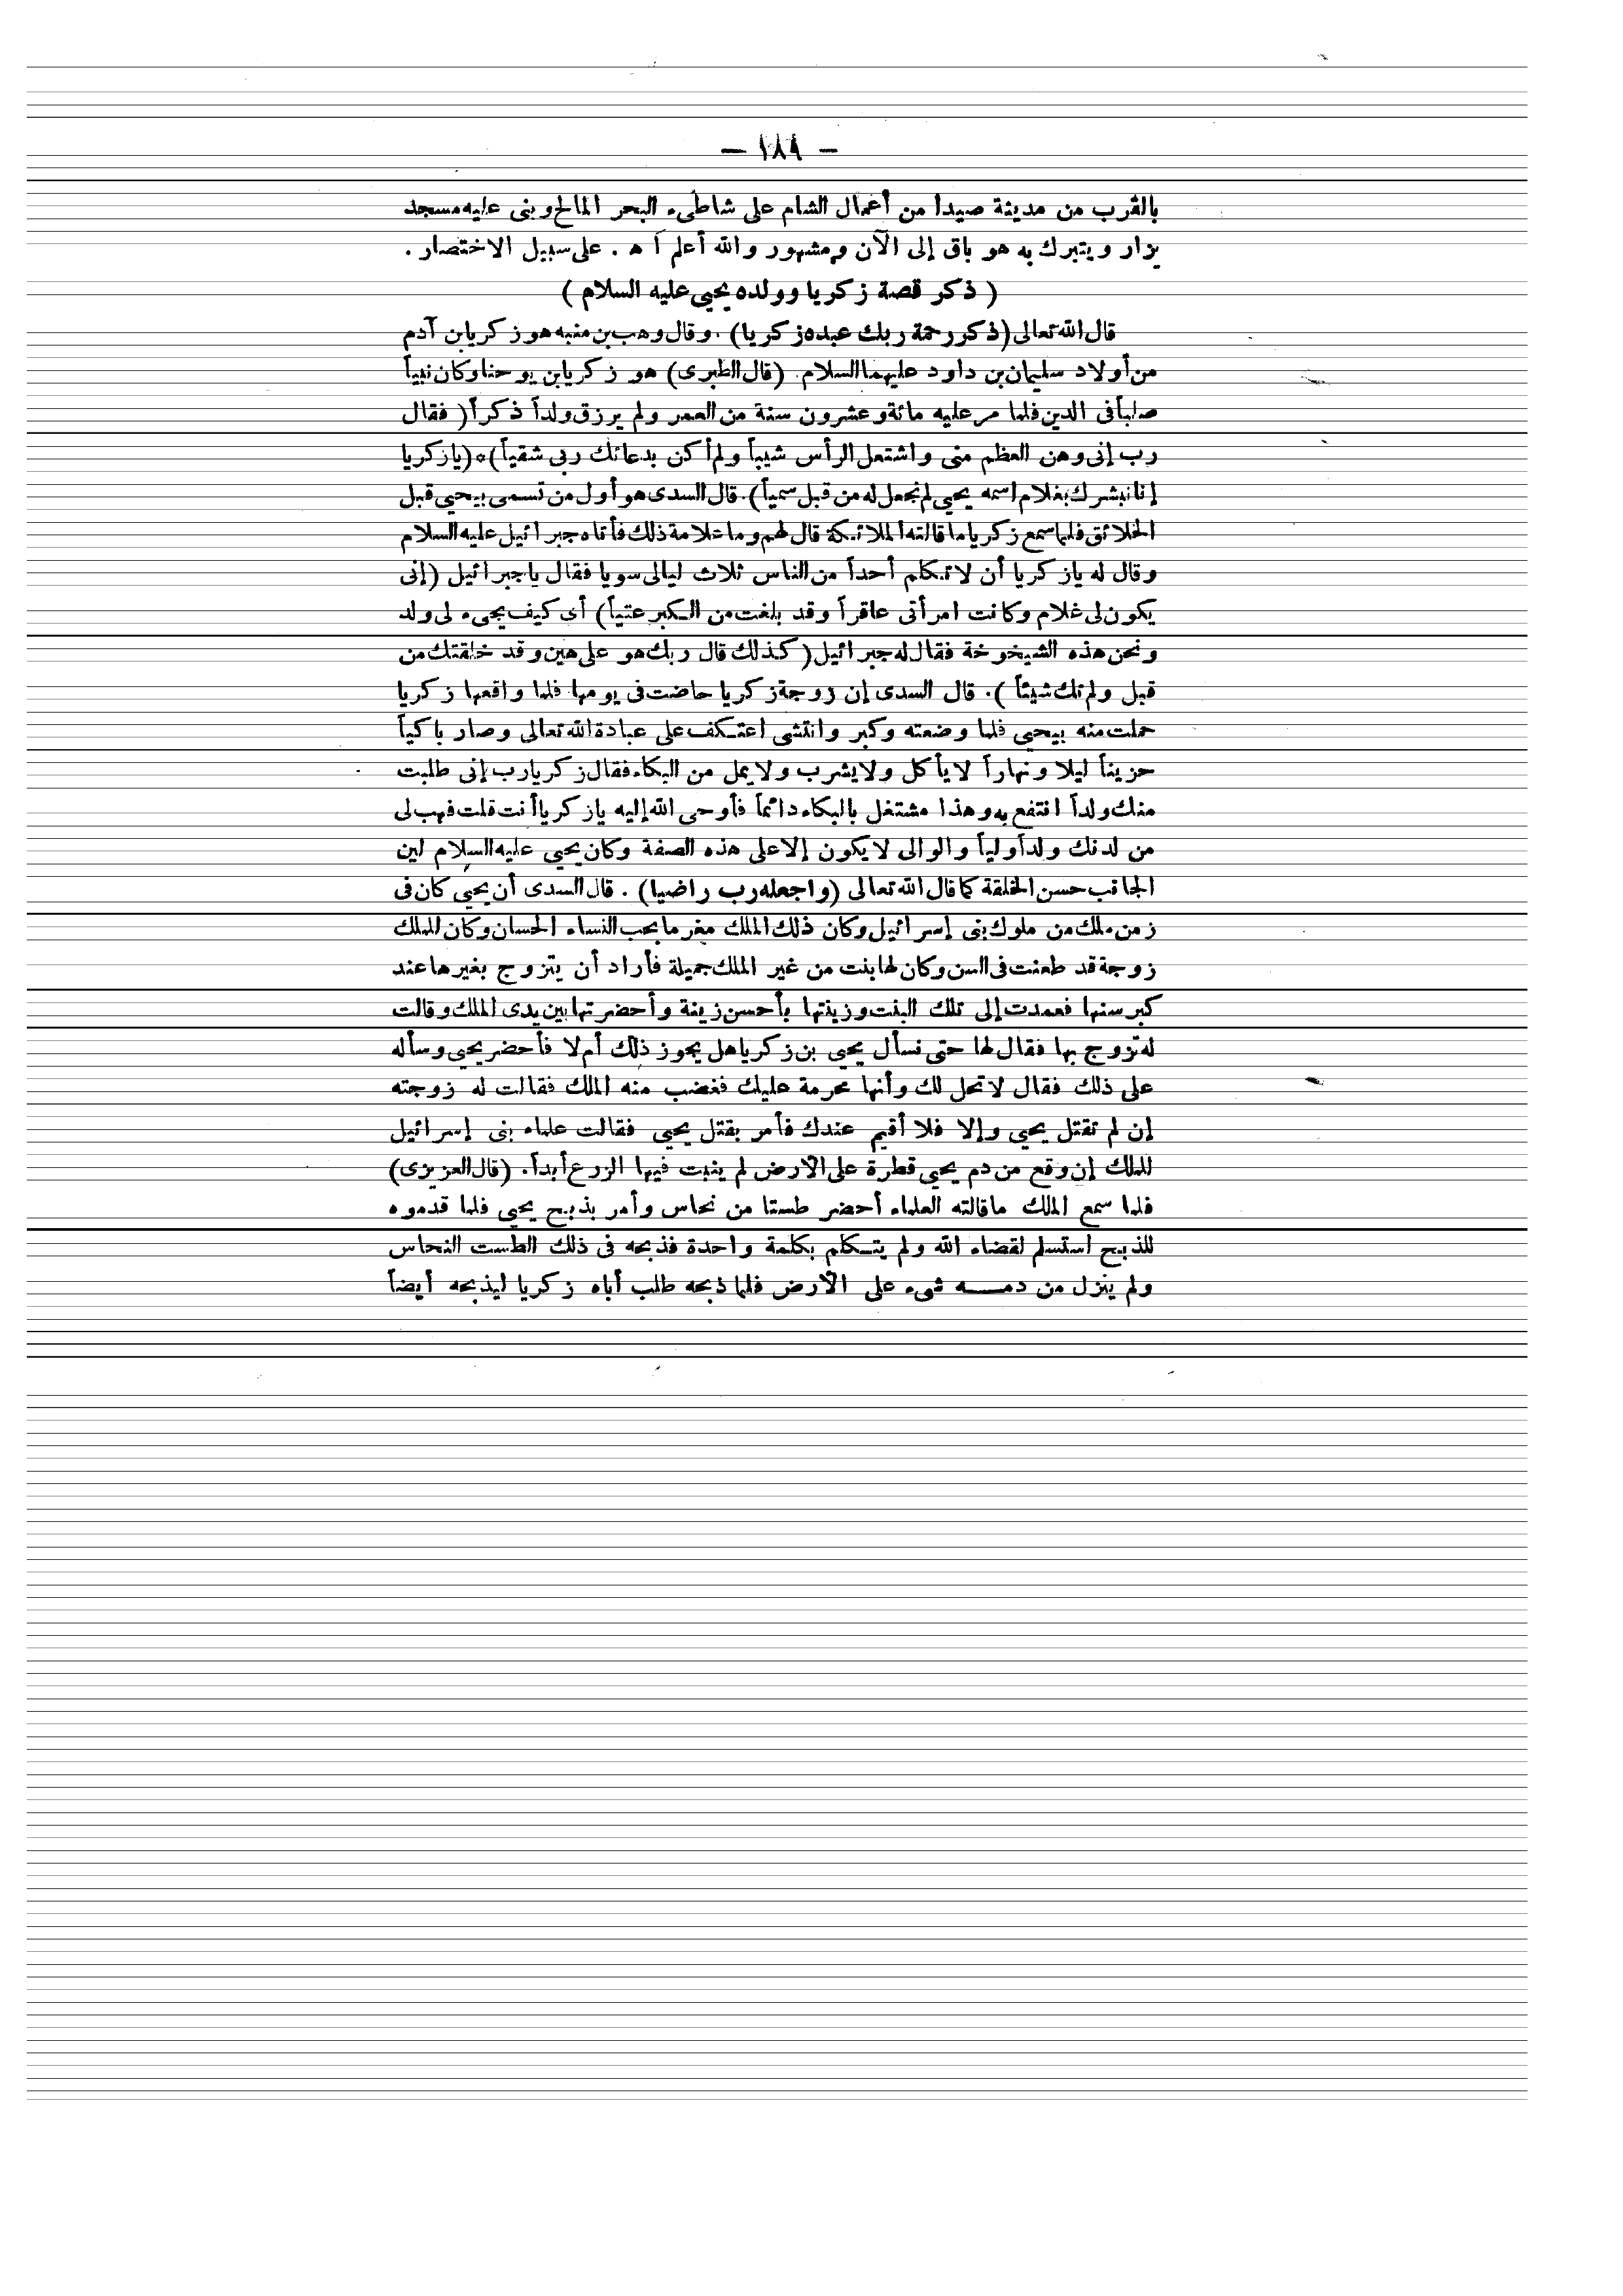 — ١٨٩ —
بالقرب من مدينة صيدا من أعمال الشام على شاطىء البحر المالح وبنى عليه مسجد
يزار ويتبرك به هو باق إلى الآن ومشهور والله أعلم أ ه . على سبيل الاختصار .
( ذكر قصة زكريا وولده يحيى عليه السلام )
قال الله تعالى (ذكر رحمة ربك عبده زكريا) . وقال وهب بن منبه هو زكريا بن آدم
من أولاد سليمان بن داود عليهما السلام . (قال الطبرى) هو زكريا بن يوحنا وكان نبياً
صلباً فى الدين فلما مر عليه مائة وعشرون سنة من العمر ولم يرزق ولداً ذكراً ( فقال
رب إنى وهن العظم منى واشتعل الرأس شيباً ولم أكن بدعائك ربى شقياً)٥(يازكريا
إنا نبشرك بغلام اسمه يحيى لم نجعل له من قبل سمياً). قال السدى هو أول من تسمى بيحيى قبل
الخلائق فلما سمع زكريا ما قالته الملائكة قال لهم وما علامة ذلك فأتاه جبرائيل عليه السلام
وقال له يازكريا أن لا تكلم أحداً من الناس ثلاث ليالى سويا فقال ياجبرائيل (إنى
يكون لى غلام وكانت امرأتى عاقراً وقد بلغت من الكبر عتياً) أى كيف يجىء لى ولد
ونحن هذه الشيخوخة فقال له جبرائيل ( كذلك قال ربك هو على هين وقد خلقتك من
قبل ولم تك شيئاً ). قال السدى إن زوجة زكريا حاضت فى يومها فلما واقعها زكريا
حملت منه بيحيى فلما وضعته وكبر وانتشى اعتكف على عبادة الله تعالى وصار باكياً
حزيناً ليلا ونهاراً لا يأكل ولا يشرب ولا يمل من البكاء فقال زكريا رب إنى طلبت
منك ولداً انتفع به وهذا مشتغل بالبكاء دائماً فأوحى الله إليه يازكريا أنت قلت فهب لى
من لدنك ولداً ولياً والوالى لا يكون إلا على هذه الصفة وكان يحيى عليه السلام لين
الجانب حسن الخلقة كما قال الله تعالى (واجعله رب راضيا) . قال السدى أن يحيى كان فى
زمن ملك من ملوك بنى إسرائيل وكان ذلك الملك مغرما بحب النساء الحسان وكان للملك
زوجة قد طعنت فى السن وكان لها بنت من غير الملك جميلة فأراد أن يتزوج بغيرها عند
كبر سنها فعمدت إلى تلك البنت وزينتها بأحسن زينة وأحضرتها بين يدى الملك وقالت
له تزوج بها فقال لها حتى نسأل يحيى بن زكريا هل يجوز ذلك أم لا فأحضر يحيى وسأله
على ذلك فقال لا تحل لك وأنها محرمة عليك فغضب منه الملك فقالت له زوجته
إن لم تقتل يحيى وإلا فلا أقيم عندك فأمر بقتل يحيى فقالت علماء بنى إسرائيل
للملك إن وقع من دم يحيى قطرة على الأرض لم ينبت فيها الزرع أبداً. (قال العزيزى)
فلما سمع الملك ماقالته العلماء أحضر طستا من نحاس وأمر بذبح يحيى فلما قدموه
للذبح استسلم لقضاء الله ولم يتكلم بكلمة واحدة فذبحه فى ذلك الطست النحاس
ولم ينزل من دمه شىء على الأرض فلما ذبحه طلب أباه زكريا ليذبحه أيضاً